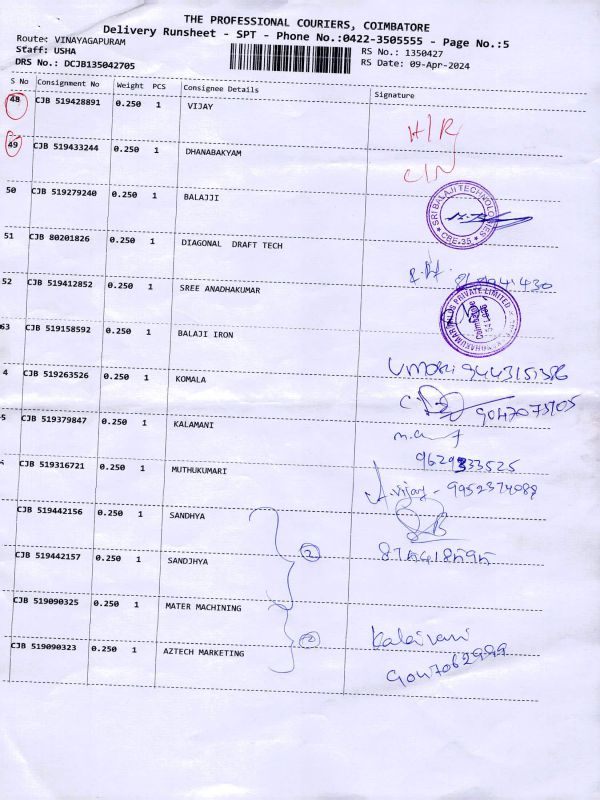 THE PROFESSIONAL COURIERS, COIMBATORE
Delivery Runsheet - SPT - Phone No.:0422-3505555 - Page No.:5
Route: VINAYAGAPURAM
RS No.: 1350427
Staff: USHA
RS Date: 09-Apr-2024
DRS No.: DCJB135042705
S No Consignment No Weight PCS Consignee Details Signature
48 CJB 519428891 0.250 1 VIJAY
H/R
49 CJB 519433244 0.250 1 DHANABAKYAM
50 CJB 519279240 0.250 1 BALAJJI
SRI BALAJI TECHNOLOGIES * CBE-35 *
51 CJB 80201826 0.250 1 DIAGONAL DRAFT TECH
52 CJB 519412852 0.250 1 SREE ANADHAKUMAR
PRIVATE LIMITED
63 CJB 519158592 0.250 1 BALAJI IRON
4 CJB 519263526 0.250 1 KOMALA
9047075105
5 CJB 519379847 0.250 1 KALAMANI
9629333525
CJB 519316721 0.250 1 MUTHUKUMARI
A. Vijay - 9952374088
CJB 519442156 0.250 1 SANDHYA
2
CJB 519442157 0.250 1 SANDJHYA
CJB 519090325 0.250 1 MATER MACHINING
2
Kalaivani
CJB 519090323 0.250 1 AZTECH MARKETING
9047062999